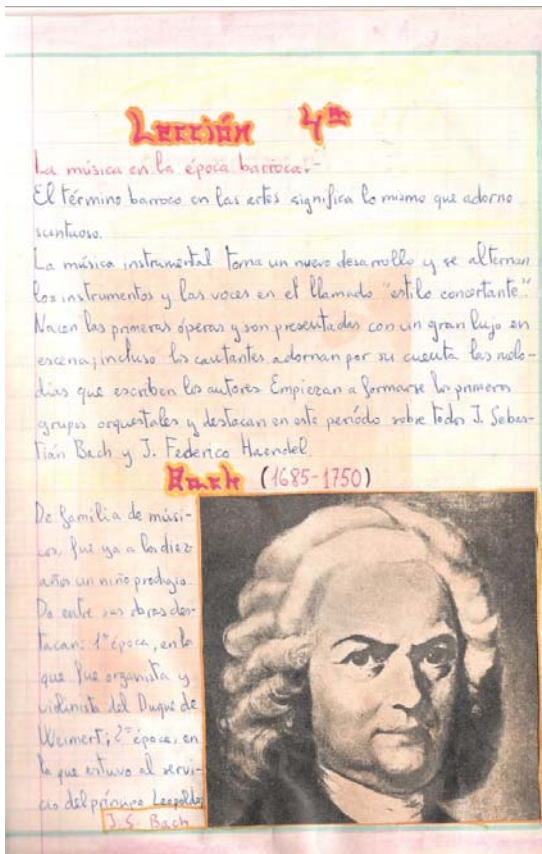 Lección 4ª
La música en la época barroca.-
El término barroco en las artes significa lo mismo que adorno
suntuoso.
La música instrumental toma un nuevo desarrollo y se alternan
los instrumentos y las voces en el llamado "estilo concertante".
Nacen las primeras óperas y son presentadas con un gran lujo en
escena; incluso los cantantes adornan por su cuenta las melo-
días que escriben los autores. Empiezan a formarse los primeros
grupos orquestales y destacan en este período sobre todos J. Sebas-
tián Bach y J. Federico Haendel.
Bach (1685-1750)
De familia de músi-
cos, fue ya a los diez
años un niño prodigio.
De entre sus obras des-
tacan: 1ª época, en la
que fue organista y
violinista del Duque de
Weimert; 2ª época, en
la que estuvo al servi-
cio del príncipe Leopoldo
J. S. Bach